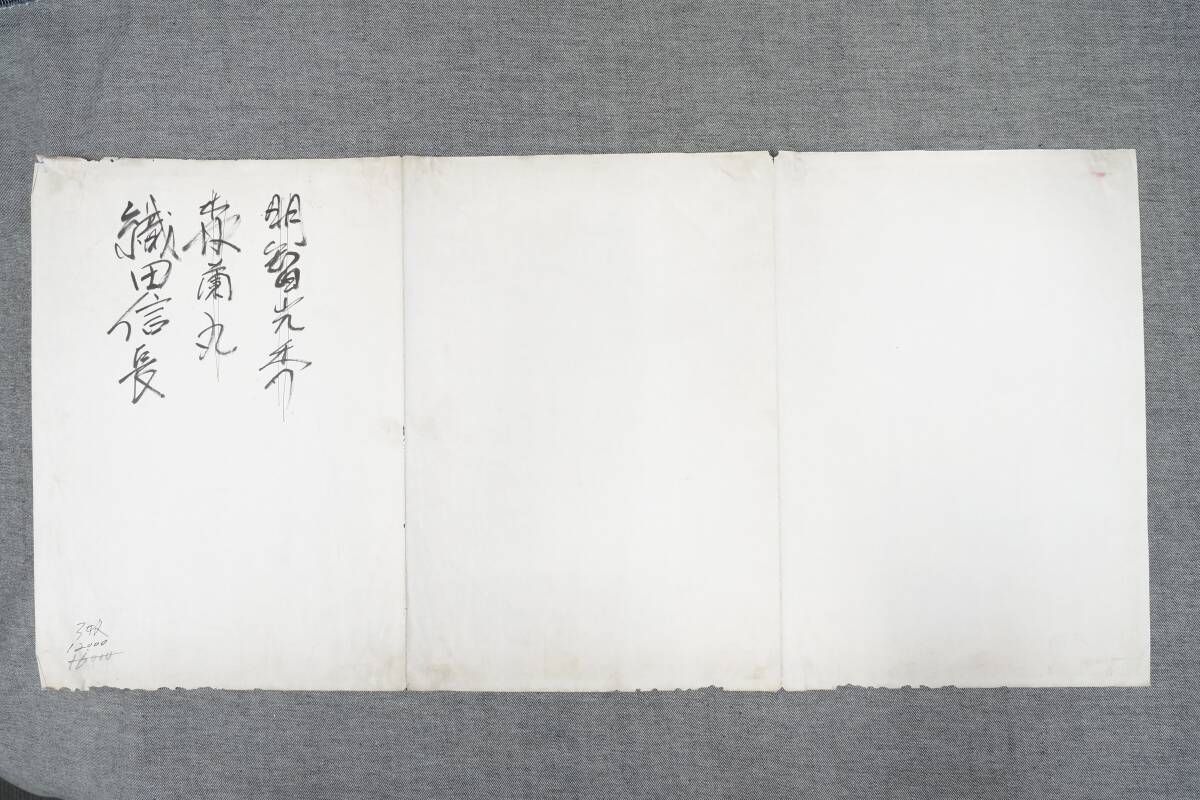 明智光秀
森蘭丸
織田信長
3枚
12000
16000